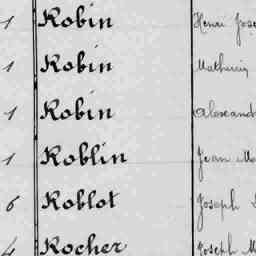 1 Robin Henri Jose
1 Robin Mathurin
1 Robin Alexand
1 Roblin Jean Ma
6 Roblot Joseph
4 Rocher Joseph M